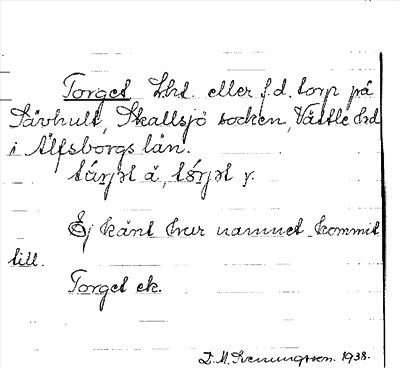 Torget Lht. eller f.d. torp på
Sävhult, Skallsjö socken, Vättle hd
i Älfsborgs län.
tårjət ä, tórjət y.
Ej känt hur namnet kommit
till.
Torget ek.
D.M. Svenungsson. 1938.